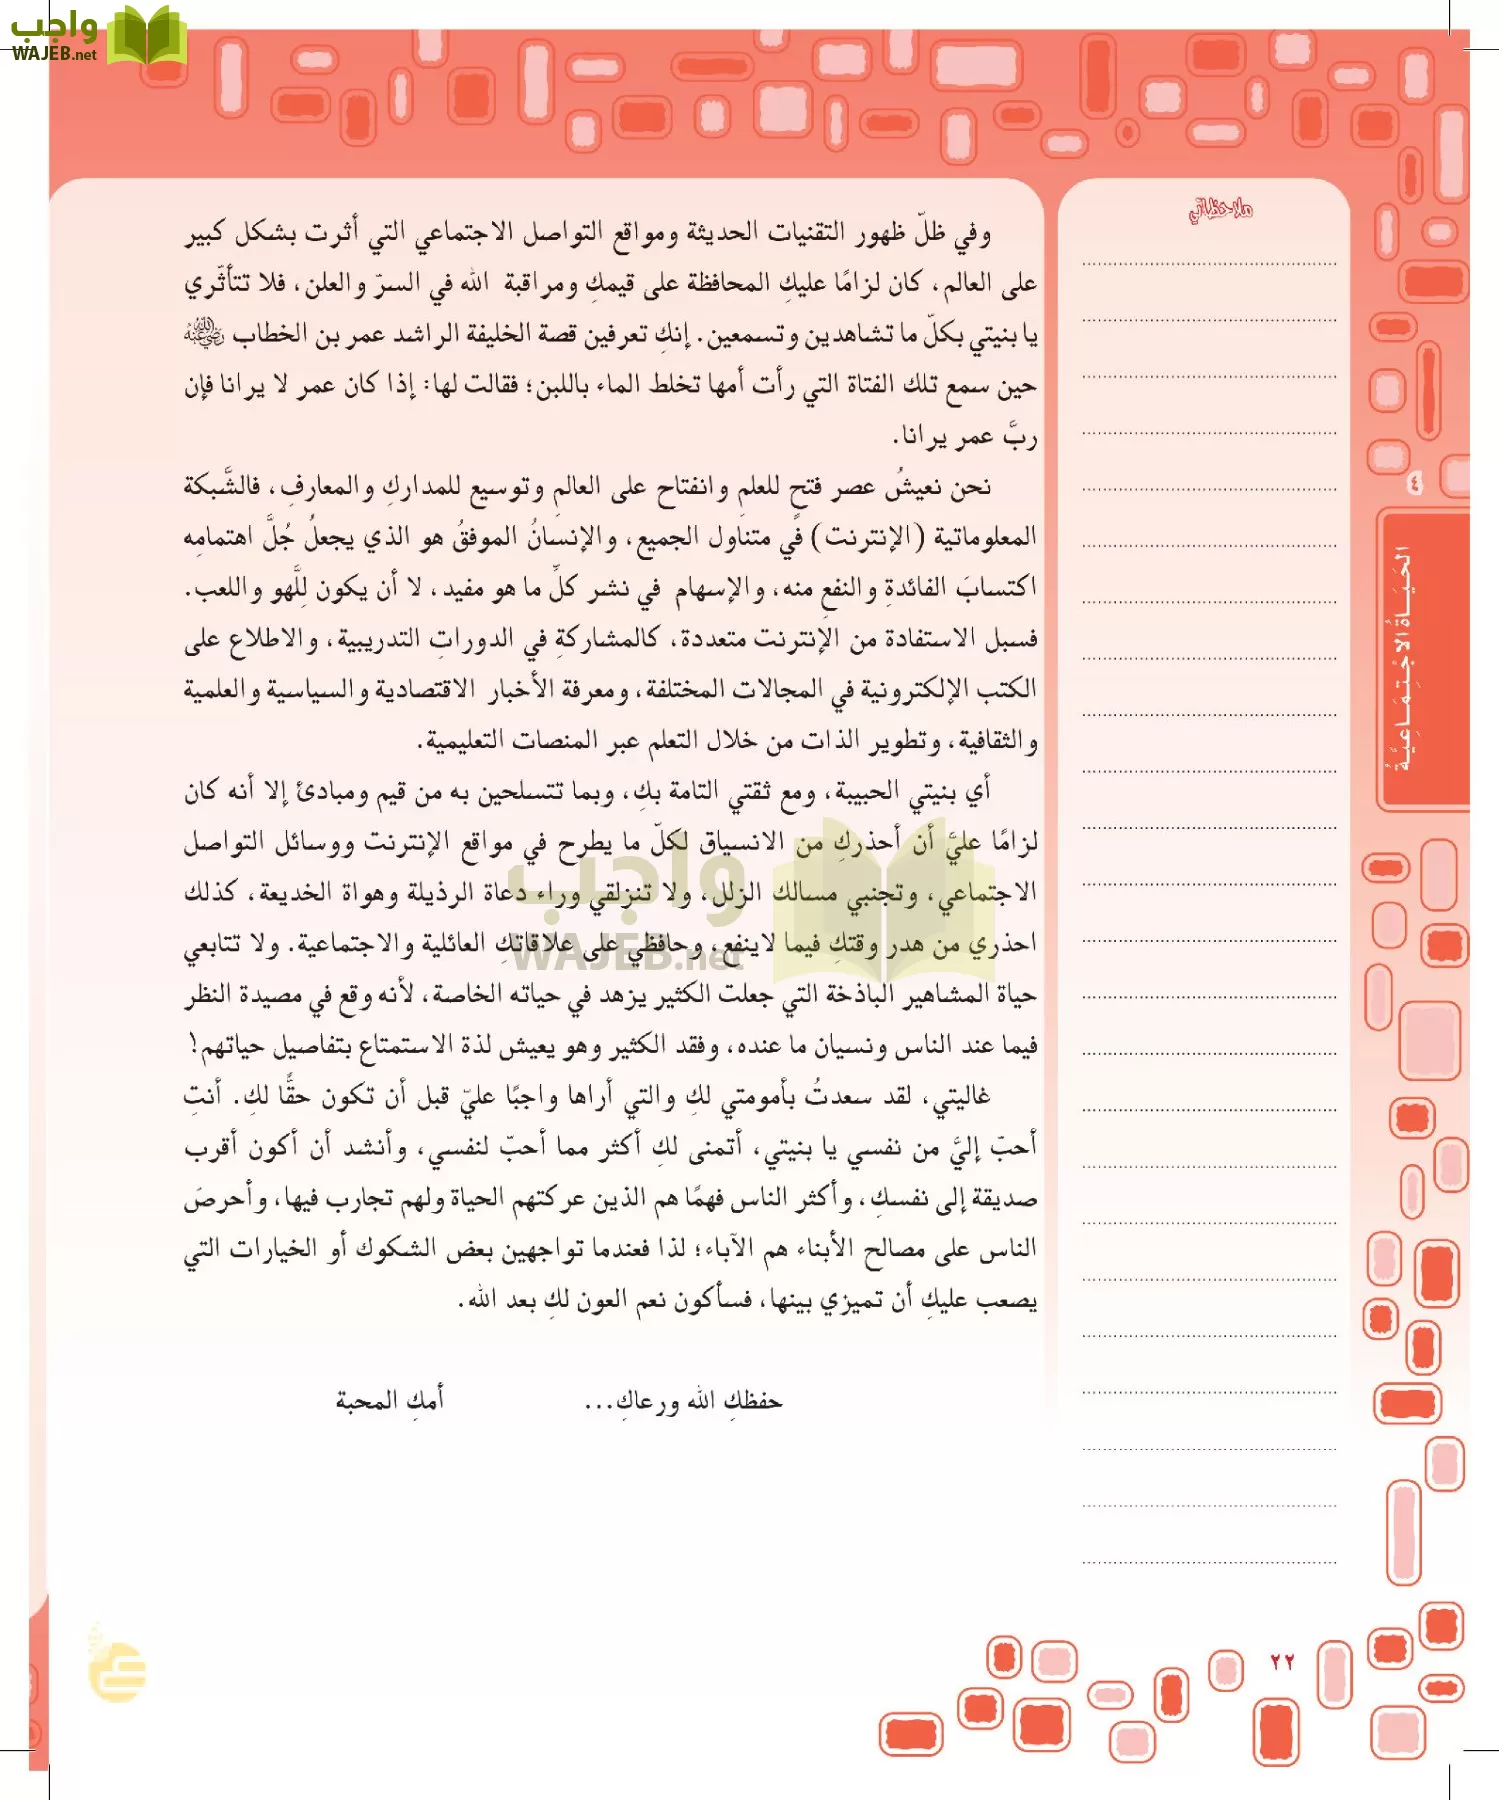 واجب
WAJEB.net
ملاحظاتي
وفي ظلّ ظهور التقنيات الحديثة ومواقع التواصل الاجتماعي التي أثرت بشكل كبير
على العالم، كان لزامًا عليكِ المحافظة على قيمكِ ومراقبة الله في السرّ والعلن، فلا تتأثّري
يا بنيتي بكلّ ما تشاهدين وتسمعين. إنكِ تعرفين قصة الخليفة الراشد عمر بن الخطاب رضي الله عنه
حين سمع تلك الفتاة التي رأت أمها تخلط الماء باللبن؛ فقالت لها: إذا كان عمر لا يرانا فإن
ربَّ عمر يرانا.
نحن نعيشُ عصر فتحٍ للعلمِ وانفتاح على العالمِ وتوسيع للمداركِ والمعارفِ، فالشَّبكة
المعلوماتية (الإنترنت) في متناول الجميع، والإنسانُ الموفقُ هو الذي يجعلُ جُلَّ اهتمامِه
اكتسابَ الفائدةِ والنفعِ منه، والإسهام في نشر كلِّ ما هو مفيد، لا أن يكون لِلَّهو واللعب.
فسبل الاستفادة من الإنترنت متعددة، كالمشاركةِ في الدوراتِ التدريبية، والاطلاع على
الكتب الإلكترونية في المجالات المختلفة، ومعرفة الأخبار الاقتصادية والسياسية والعلمية
والثقافية، وتطوير الذات من خلال التعلم عبر المنصات التعليمية.
أي بنيتي الحبيبة، ومع ثقتي التامة بكِ، وبما تتسلحين به من قيم ومبادئ إلا أنه كان
لزامًا عليَّ أن أحذركِ من الانسياق لكلّ ما يطرح في مواقع الإنترنت ووسائل التواصل
الاجتماعي، وتجنبي مسالك الزلل، ولا تنزلقي وراء دعاة الرذيلة وهواة الخديعة، كذلك
احذري من هدر وقتكِ فيما لاينفع، وحافظي على علاقاتكِ العائلية والاجتماعية. ولا تتابعي
حياة المشاهير الباذخة التي جعلت الكثير يزهد في حياته الخاصة، لأنه وقع في مصيدة النظر
فيما عند الناس ونسيان ما عنده، وفقد الكثير وهو يعيش لذة الاستمتاع بتفاصيل حياتهم!
غاليتي، لقد سعدتُ بأمومتي لكِ والتي أراها واجبًا عليّ قبل أن تكون حقًّا لكِ. أنتِ
أحبّ إليَّ من نفسي يا بنيتي، أتمنى لكِ أكثر مما أحبّ لنفسي، وأنشد أن أكون أقرب
صديقة إلى نفسكِ، وأكثر الناس فهمًا هم الذين عركتهم الحياة ولهم تجارب فيها، وأحرصَ
الناس على مصالح الأبناء هم الآباء؛ لذا فعندما تواجهين بعض الشكوك أو الخيارات التي
يصعب عليكِ أن تميزي بينها، فسأكون نعم العون لكِ بعد الله.
حفظكِ الله ورعاكِ... أمكِ المحبة
واجب
WAJEB.net
الحَيَاةُ الاجْتِمَاعِيَّةُ
٢٢